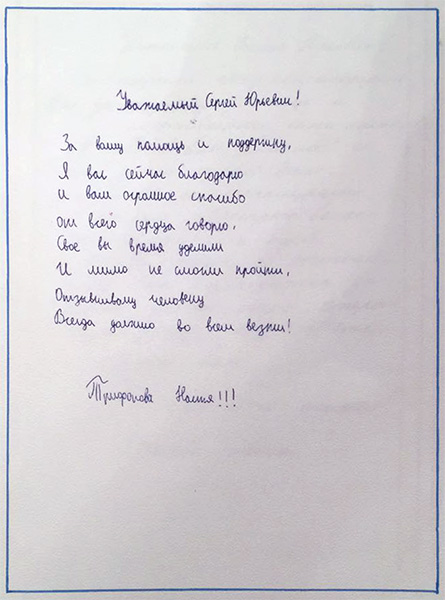 Уважаемый Сергей Юрьевич!
За вашу помощь и поддержку,
Я вас сейчас благодарю
и вам огромное спасибо
от всего сердца говорю.
Свое вы время уделили
И мимо не смогли пройти,
Отзывшивому человеку
Всегда должно во всем везти!
Трифонова Настя!!!